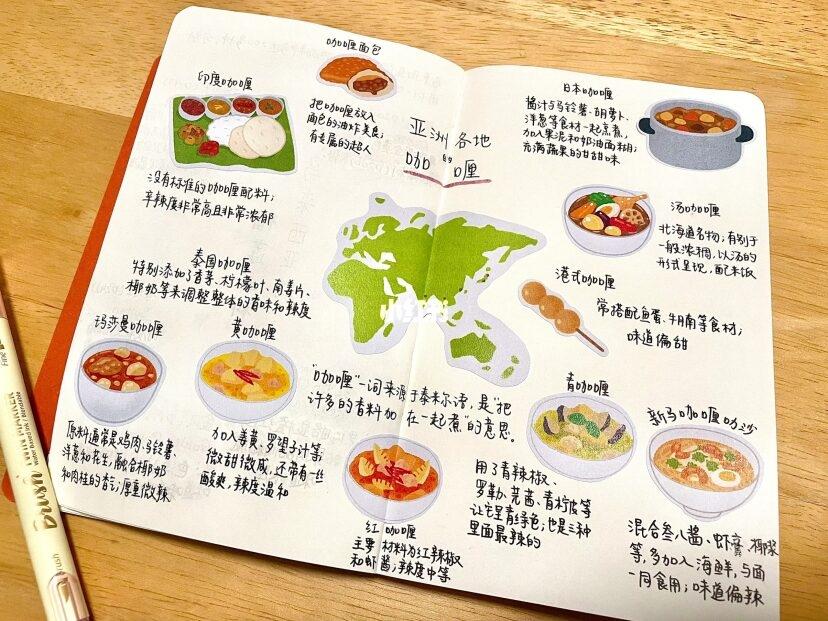 亚洲各地
的
咖喱
咖喱面包
把咖喱放入
面包的油炸美食；
有专属的超人
印度咖喱
没有标准的咖喱配料；
辛辣度非常高且非常浓郁
泰国咖喱
特别添加了香茅、柠檬叶、南姜片、
椰奶等来调整整体的香味和辣度
玛莎曼咖喱
原料通常是鸡肉、马铃薯、
洋葱和花生，融合椰奶
和肉桂的香气；厚重微辣
黄咖喱
加入姜黄、罗望子汁等，
微甜微咸，还带有一丝
酸爽，辣度温和
"咖喱"一词来源于泰米尔语，是"把
许多的香料加在一起煮"的意思。
红咖喱
主要材料为红辣椒
和虾酱；辣度中等
日本咖喱
酱汁与马铃薯、胡萝卜、
洋葱等食材一起熬煮，
加入果泥和奶油面糊；
充满蔬果的甘甜味
汤咖喱
北海道名物；有别于
一般浓稠，以汤的
形式呈现，配米饭
港式咖喱
常搭配鱼蛋、牛腩等食材；
味道偏甜
青咖喱
用了青辣椒、
罗勒、芫荽、青柠皮等
让它呈青绿色；也是三种
里面最辣的
新马咖喱叻沙
混合叁八酱、虾膏、椰浆
等，多加入海鲜，与面
一同食用；味道偏辣
小红书
Fine
Brush TWIN MARKER
Water Based Ink / Blendable
Brush